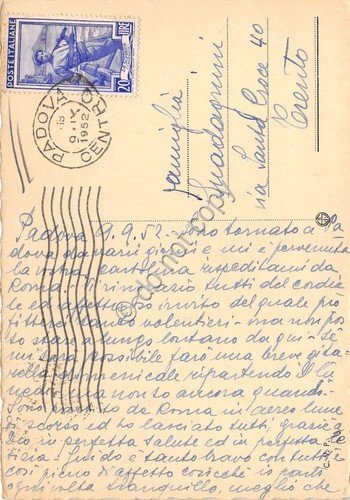 POSTE ITALIANE
LIRE 20
PADOVA CENTRO
9.IX
1952
famiglia
Guadagnini
via Santa Croce 40
Trento
Padova 9.9.52. Sono tornato a Pa
dova da varii giorni e mi è pervenuta
la vostra cartolina inspeditami da
Roma. Vi ringrazio tutti del cordia
le ed affettuoso invito del quale pro
fitterei tanto volentieri - ma non pos
so stare a lungo lontano da qui - Se
mi sarà possibile farò una breve gita
domenicale ripartendo il lu
nedì ma non so ancora quando.
Sono partito da Roma in aereo lune
dì scorso ed ho lasciato tutti grazie a
Dio in perfetta salute ed in perfetta le
tizia. Guido è tanto bravo con tutti e
così pieno di affetto cosicchè io parto
ogni volta tranquillo, meglio che